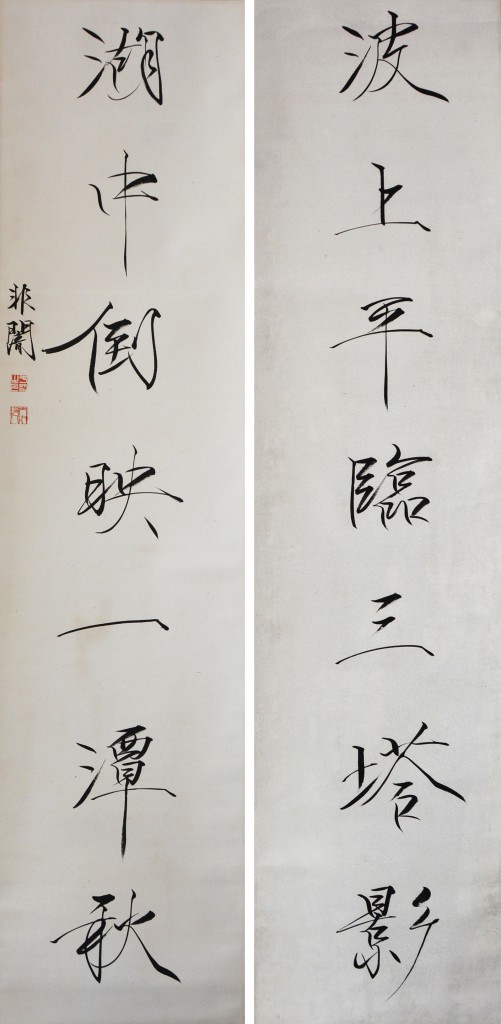 波上平臨三塔影
湖中倒映一潭秋
非闇